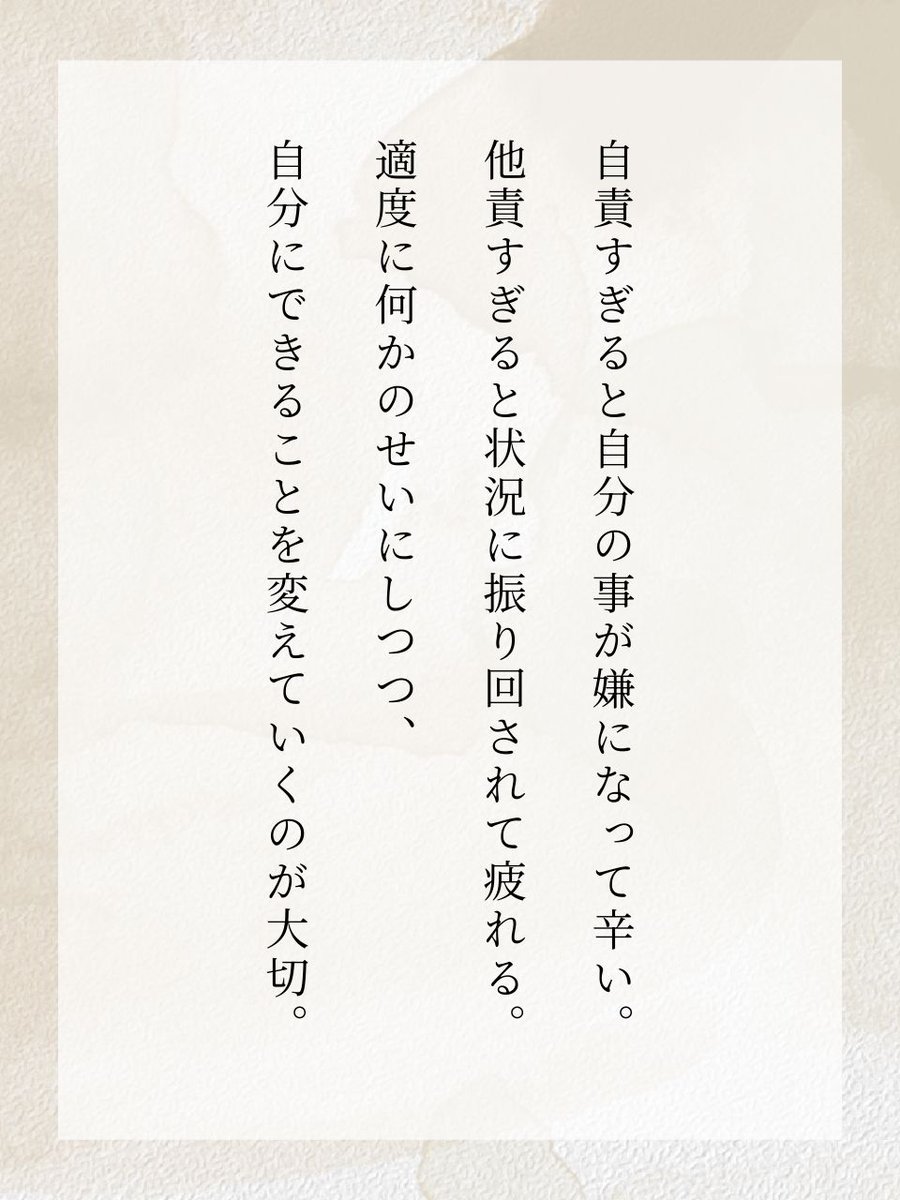 自責すぎると自分の事が嫌になって辛い。
他責すぎると状況に振り回されて疲れる。
適度に何かのせいにしつつ、
自分にできることを変えていくのが大切。